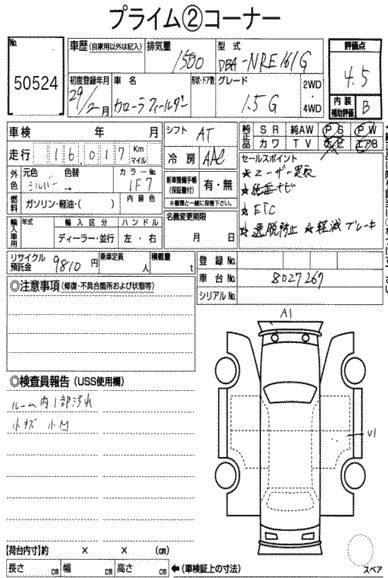 プライム②コーナー
No. 50524
車歴 (自家用以外は記入)
排気量 1500
型式 DBA-NRE161G
評価点 4.5
内装補助評価 B
初度登録年月 29年2月
車名 カローラフィールダー
形状・ドア数
グレード 1.5G
2WD・4WD
車検 年 月
シフト AT
純正品 SR 純AW PS PW
カワ TV ナビ エアB
走行 16,017 Km マイル
冷房 AAC
セールスポイント
★ユーザー買取
★純正ナビ
★ETC
★逸脱防止 ★軽減ブレーキ
外色 元色 シルバー 色替 カラーNo. 1F7
燃料 ガソリン・軽油・( ) 内装色
新車整備手帳(保証書付) 有・無
※書類と一緒に保管下さい。
輸入車用 年式 輸入区分 ハンドル
ディーラー・並行 左・右
名義変更期限 月 日
リサイクル預託金 9810円
乗車定員 人
積載量 t
登録No.
車台No. 8027267
シリアルNo.
◎注意事項 (修復・不具合箇所および状態等)
◎検査員報告 (USS使用欄)
ルーム内1部汚れ
小キズ 小凹
A1
U1
【荷台内寸】約 × × (cm)
長さ cm 幅 cm 高さ cm ←(車検証上の寸法)
スペア